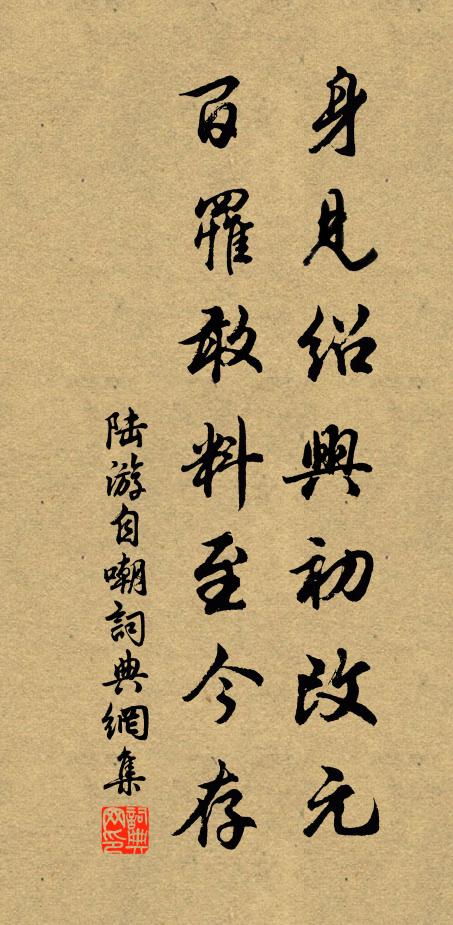 身見紹興初改元
百罹敢料至今存
陸游自嘲詞典網集
詞典網印